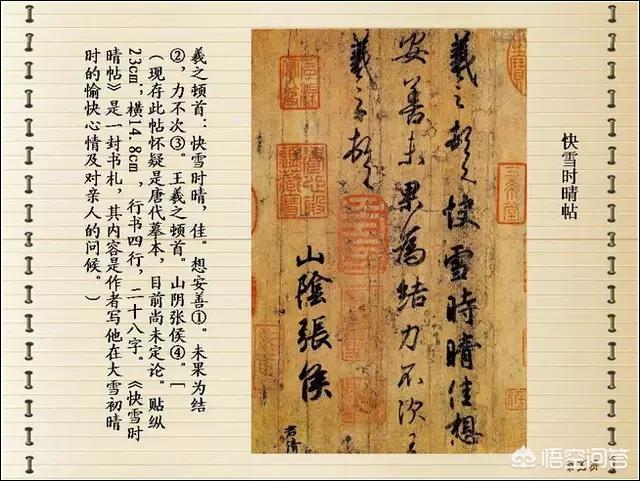 快雪时晴帖
羲之頓首快雪時晴佳想
安善未果為結力不次王
羲之頓首
山陰張侯
君倩
羲之顿首：快雪时晴，佳。想安善①。未果为结
②，力不次③。王羲之顿首。山阴张侯④。［
（现存此帖怀疑是唐代摹本，目前尚未定论。贴纵
23cm；横14.8cm，行书四行，二十八字。《快雪时
晴帖》是一封书札，其内容是作者写他在大雪初晴
时的愉快心情及对亲人的问候。）
悟空问答